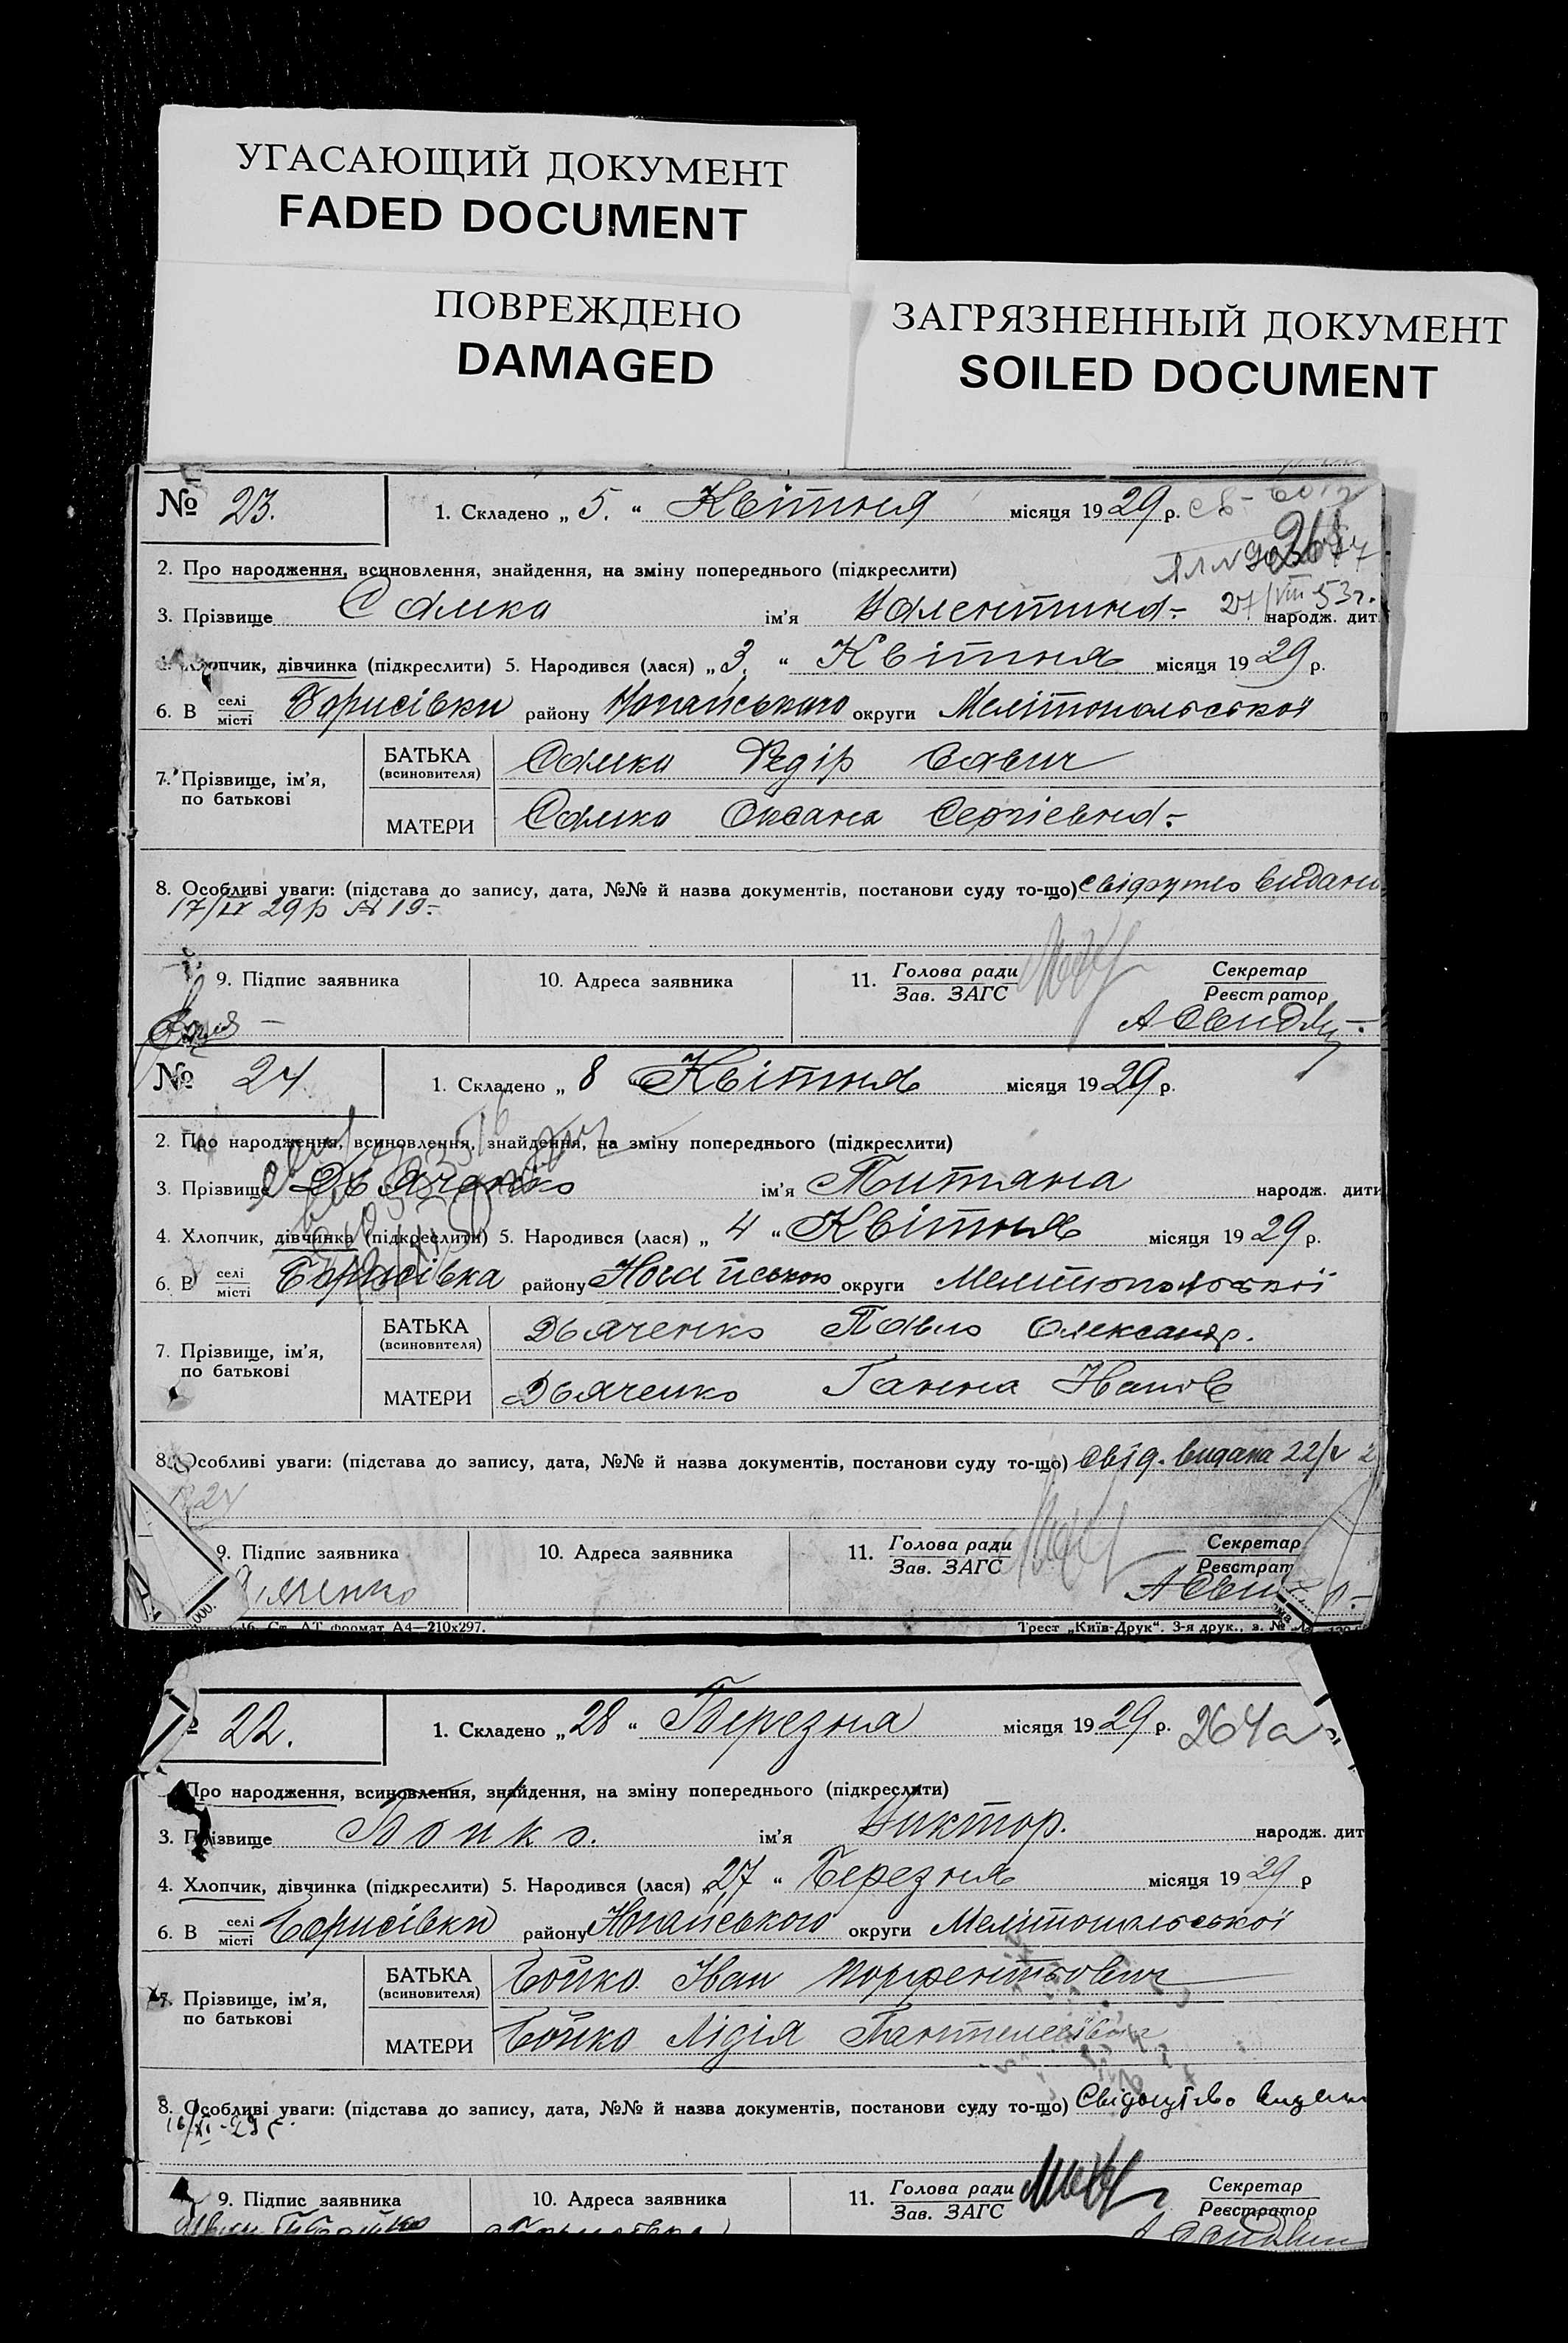 УГАСАЮЩИЙ ДОКУМЕНТ
FADED DOCUMENT
ПОВРЕЖДЕНО
DAMAGED
ЗАГРЯЗНЕННЫЙ ДОКУМЕНТ
SOILED DOCUMENT
№ 23.
1. Складено „ 5. “ Квітня місяця 1929 р.
2. Про народження, всиновлення, знайдення, на зміну попереднього (підкреслити)
27/VIII 53г.
3. Прізвище Самко ім'я Валентина народж. дит
Хлопчик, дівчинка (підкреслити) 5. Народився (лася) „ 3. “ Квітня місяця 1929 р.
6. В селі місті Борисівки району Ногайського округи Мелітопольської
7. Прізвище, ім'я, по батькові
БАТЬКА (всиновителя) Самко Федір Савич
МАТЕРИ Самко Оксана Сергієвна
8. Особливі уваги: (підстава до запису, дата, №№ й назва документів, постанови суду то-що) видано
17/IX 29 р № 19
9. Підпис заявника 10. Адреса заявника 11. Голова ради Зав. ЗАГС Секретар Реєстратор
№ 24.
1. Складено „ 8 “ Квітня місяця 1929 р.
2. Про народження, всиновлення, знайдення, на зміну попереднього (підкреслити)
3. Прізвище Дьяченко ім'я Титяна народж. дити
4. Хлопчик, дівчинка (підкреслити) 5. Народився (лася) „ 4 “ Квітня місяця 1929 р.
6. В селі місті Борисівка району Ногайською округи Мелітопольської
7. Прізвище, ім'я, по батькові
БАТЬКА (всиновителя) Дьяченко Павло Олександр.
МАТЕРИ Дьяченко Ганна Іванов
8. Особливі уваги: (підстава до запису, дата, №№ й назва документів, постанови суду то-що) Свід. видана 22/V 2
9. Підпис заявника 10. Адреса заявника 11. Голова ради Зав. ЗАГС Секретар Реєстрат
Ст. АТ формат А4—210х297. Трест „Київ-Друк“. 3-я друк., з. №
22.
1. Складено „ 28 “ Березня місяця 1929 р. 264а
Про народження, всиновлення, знайдення, на зміну попереднього (підкреслити)
3. Прізвище Бойко. ім'я Виктор. народж. дит
4. Хлопчик, дівчинка (підкреслити) 5. Народився (лася) „ 27 “ Березня місяця 1929 р
6. В селі місті Борисівки району Ногайського округи Мелітопольської
7. Прізвище, ім'я, по батькові
БАТЬКА (всиновителя) Бойко Іван
МАТЕРИ Бойко Лідія
8. Особливі уваги: (підстава до запису, дата, №№ й назва документів, постанови суду то-що) Свідоцтво
9. Підпис заявника 10. Адреса заявника 11. Голова ради Зав. ЗАГС Секретар Реєстратор